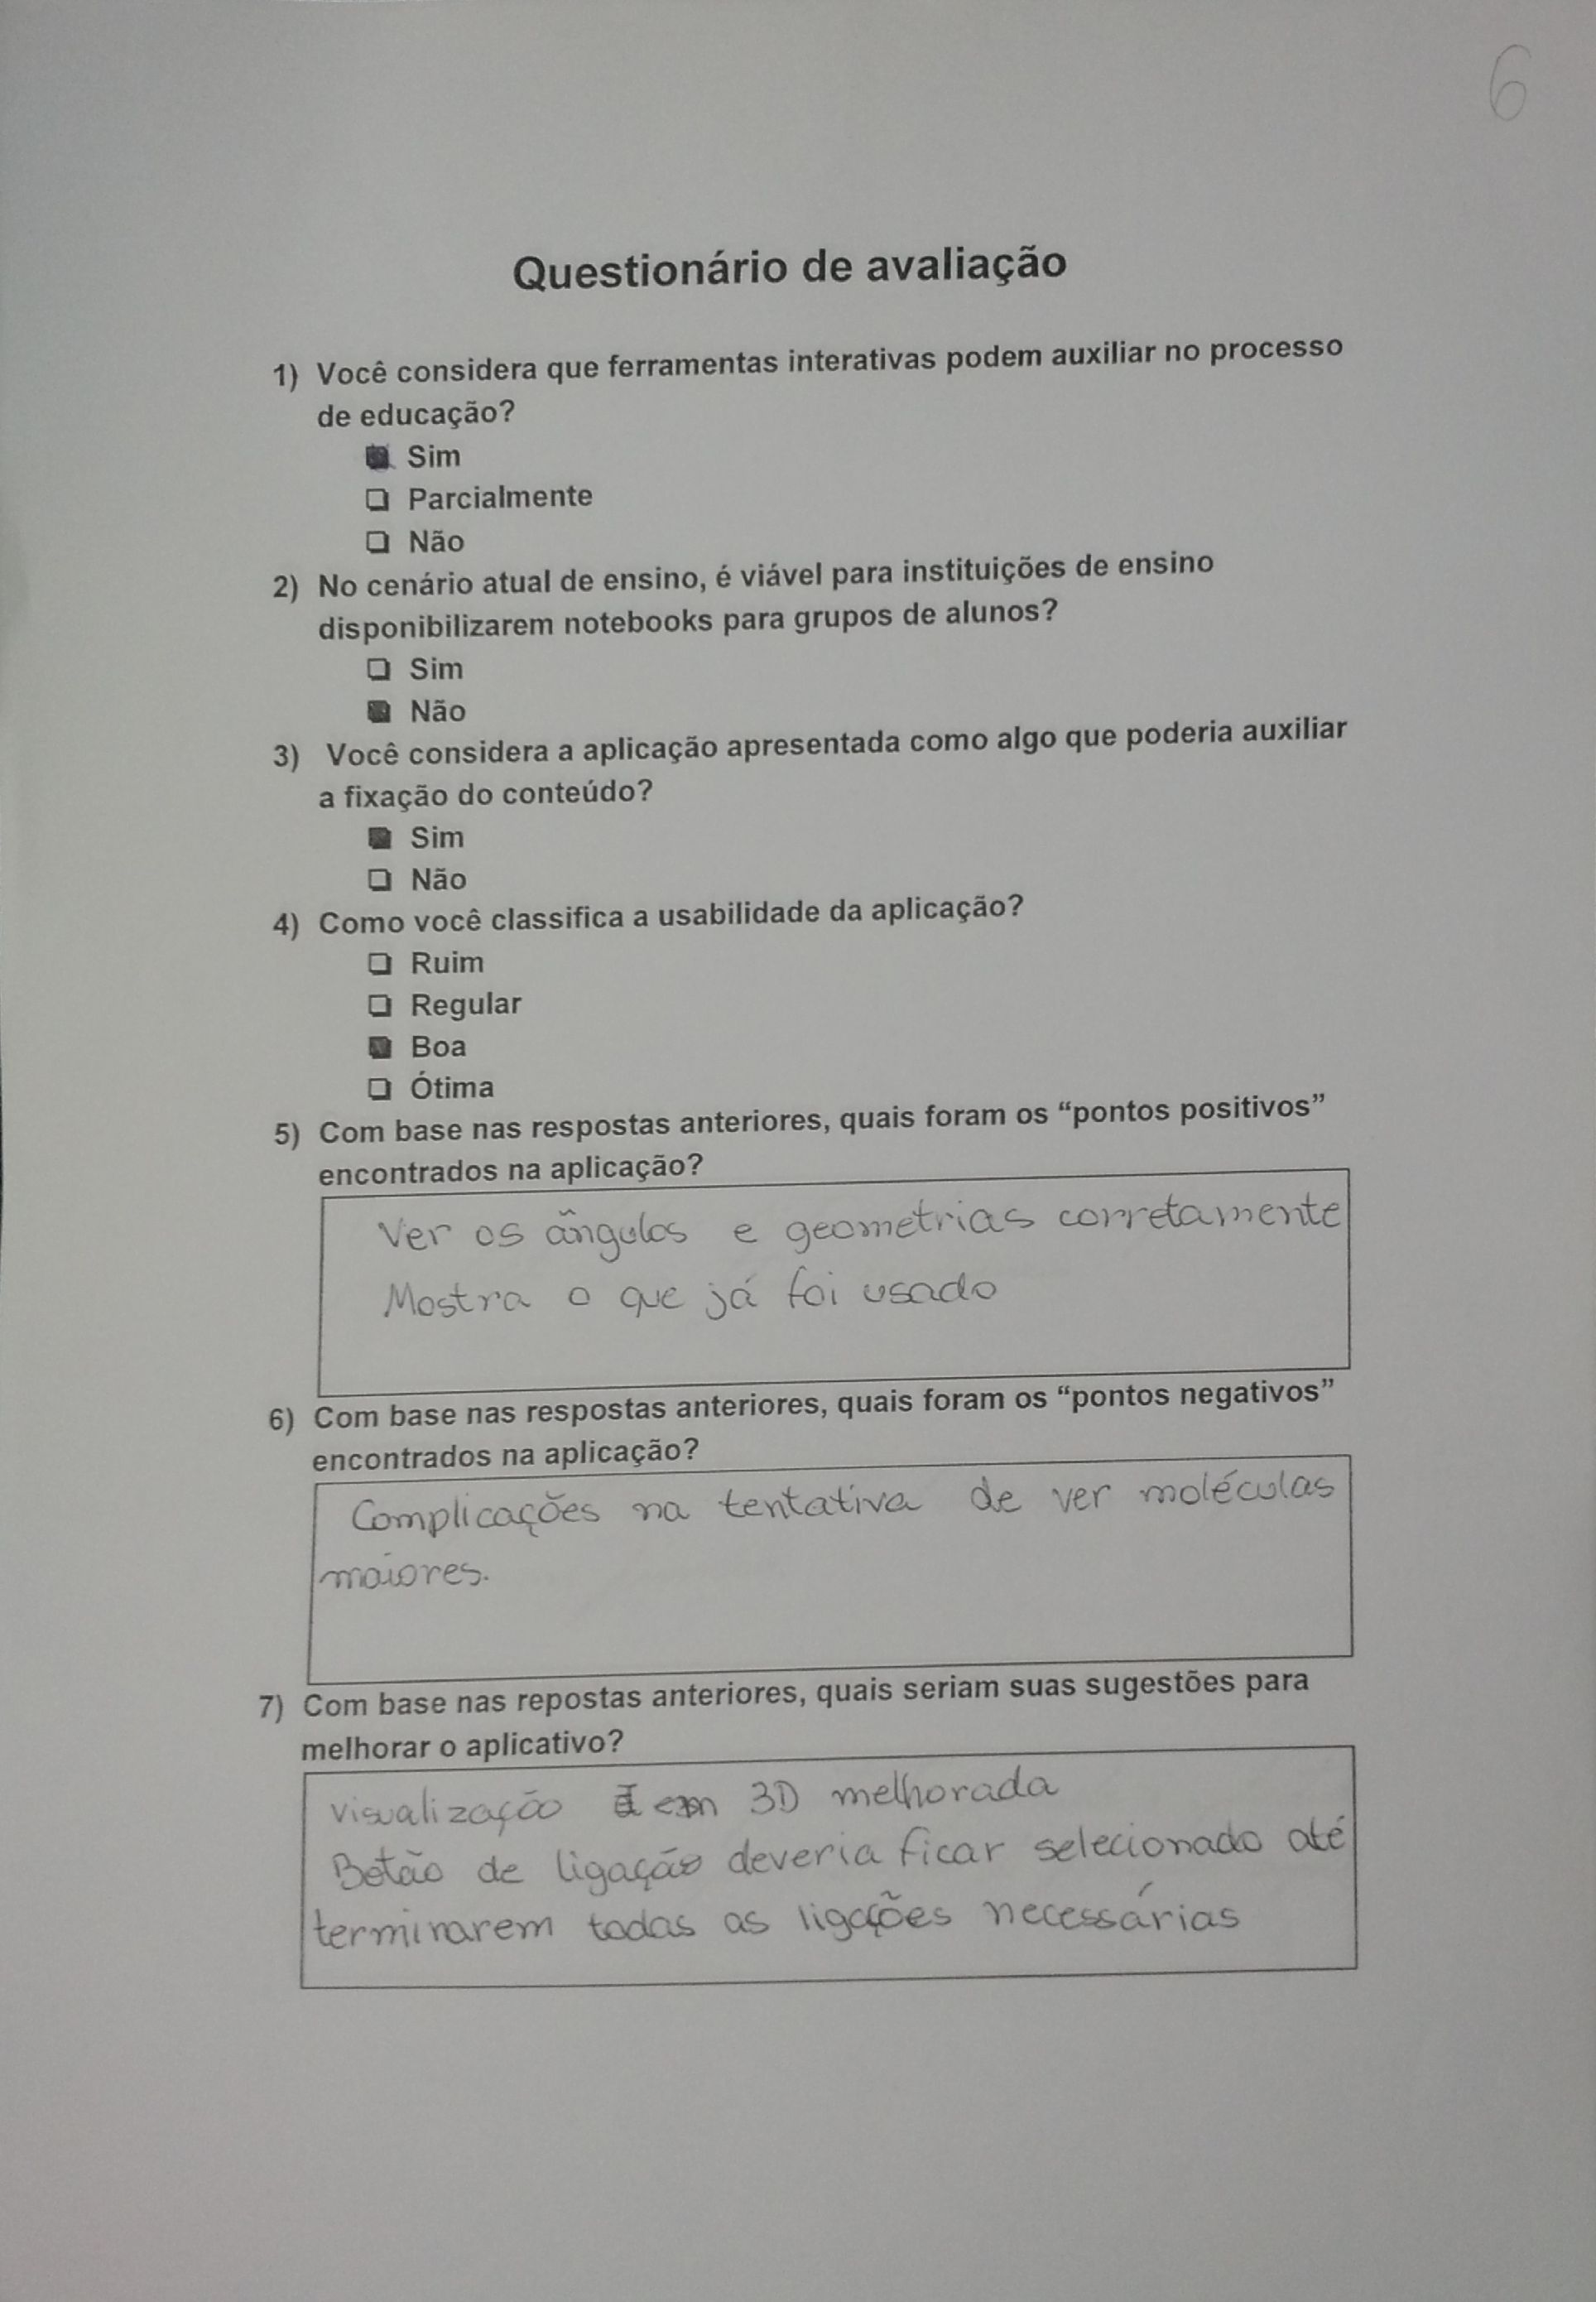 6
Questionário de avaliação
1) Você considera que ferramentas interativas podem auxiliar no processo
de educação?
Sim
Parcialmente
Não
2) No cenário atual de ensino, é viável para instituições de ensino
disponibilizarem notebooks para grupos de alunos?
Sim
Não
3) Você considera a aplicação apresentada como algo que poderia auxiliar
a fixação do conteúdo?
Sim
Não
4) Como você classifica a usabilidade da aplicação?
Ruim
Regular
Boa
Ótima
5) Com base nas respostas anteriores, quais foram os “pontos positivos”
encontrados na aplicação?
Ver os ângulos e geometrias corretamente
Mostra o que já foi usado
6) Com base nas respostas anteriores, quais foram os “pontos negativos”
encontrados na aplicação?
Complicações na tentativa de ver moléculas
maiores.
7) Com base nas repostas anteriores, quais seriam suas sugestões para
melhorar o aplicativo?
Visualização em 3D melhorada
Botão de ligação deveria ficar selecionado até
terminarem todas as ligações necessárias